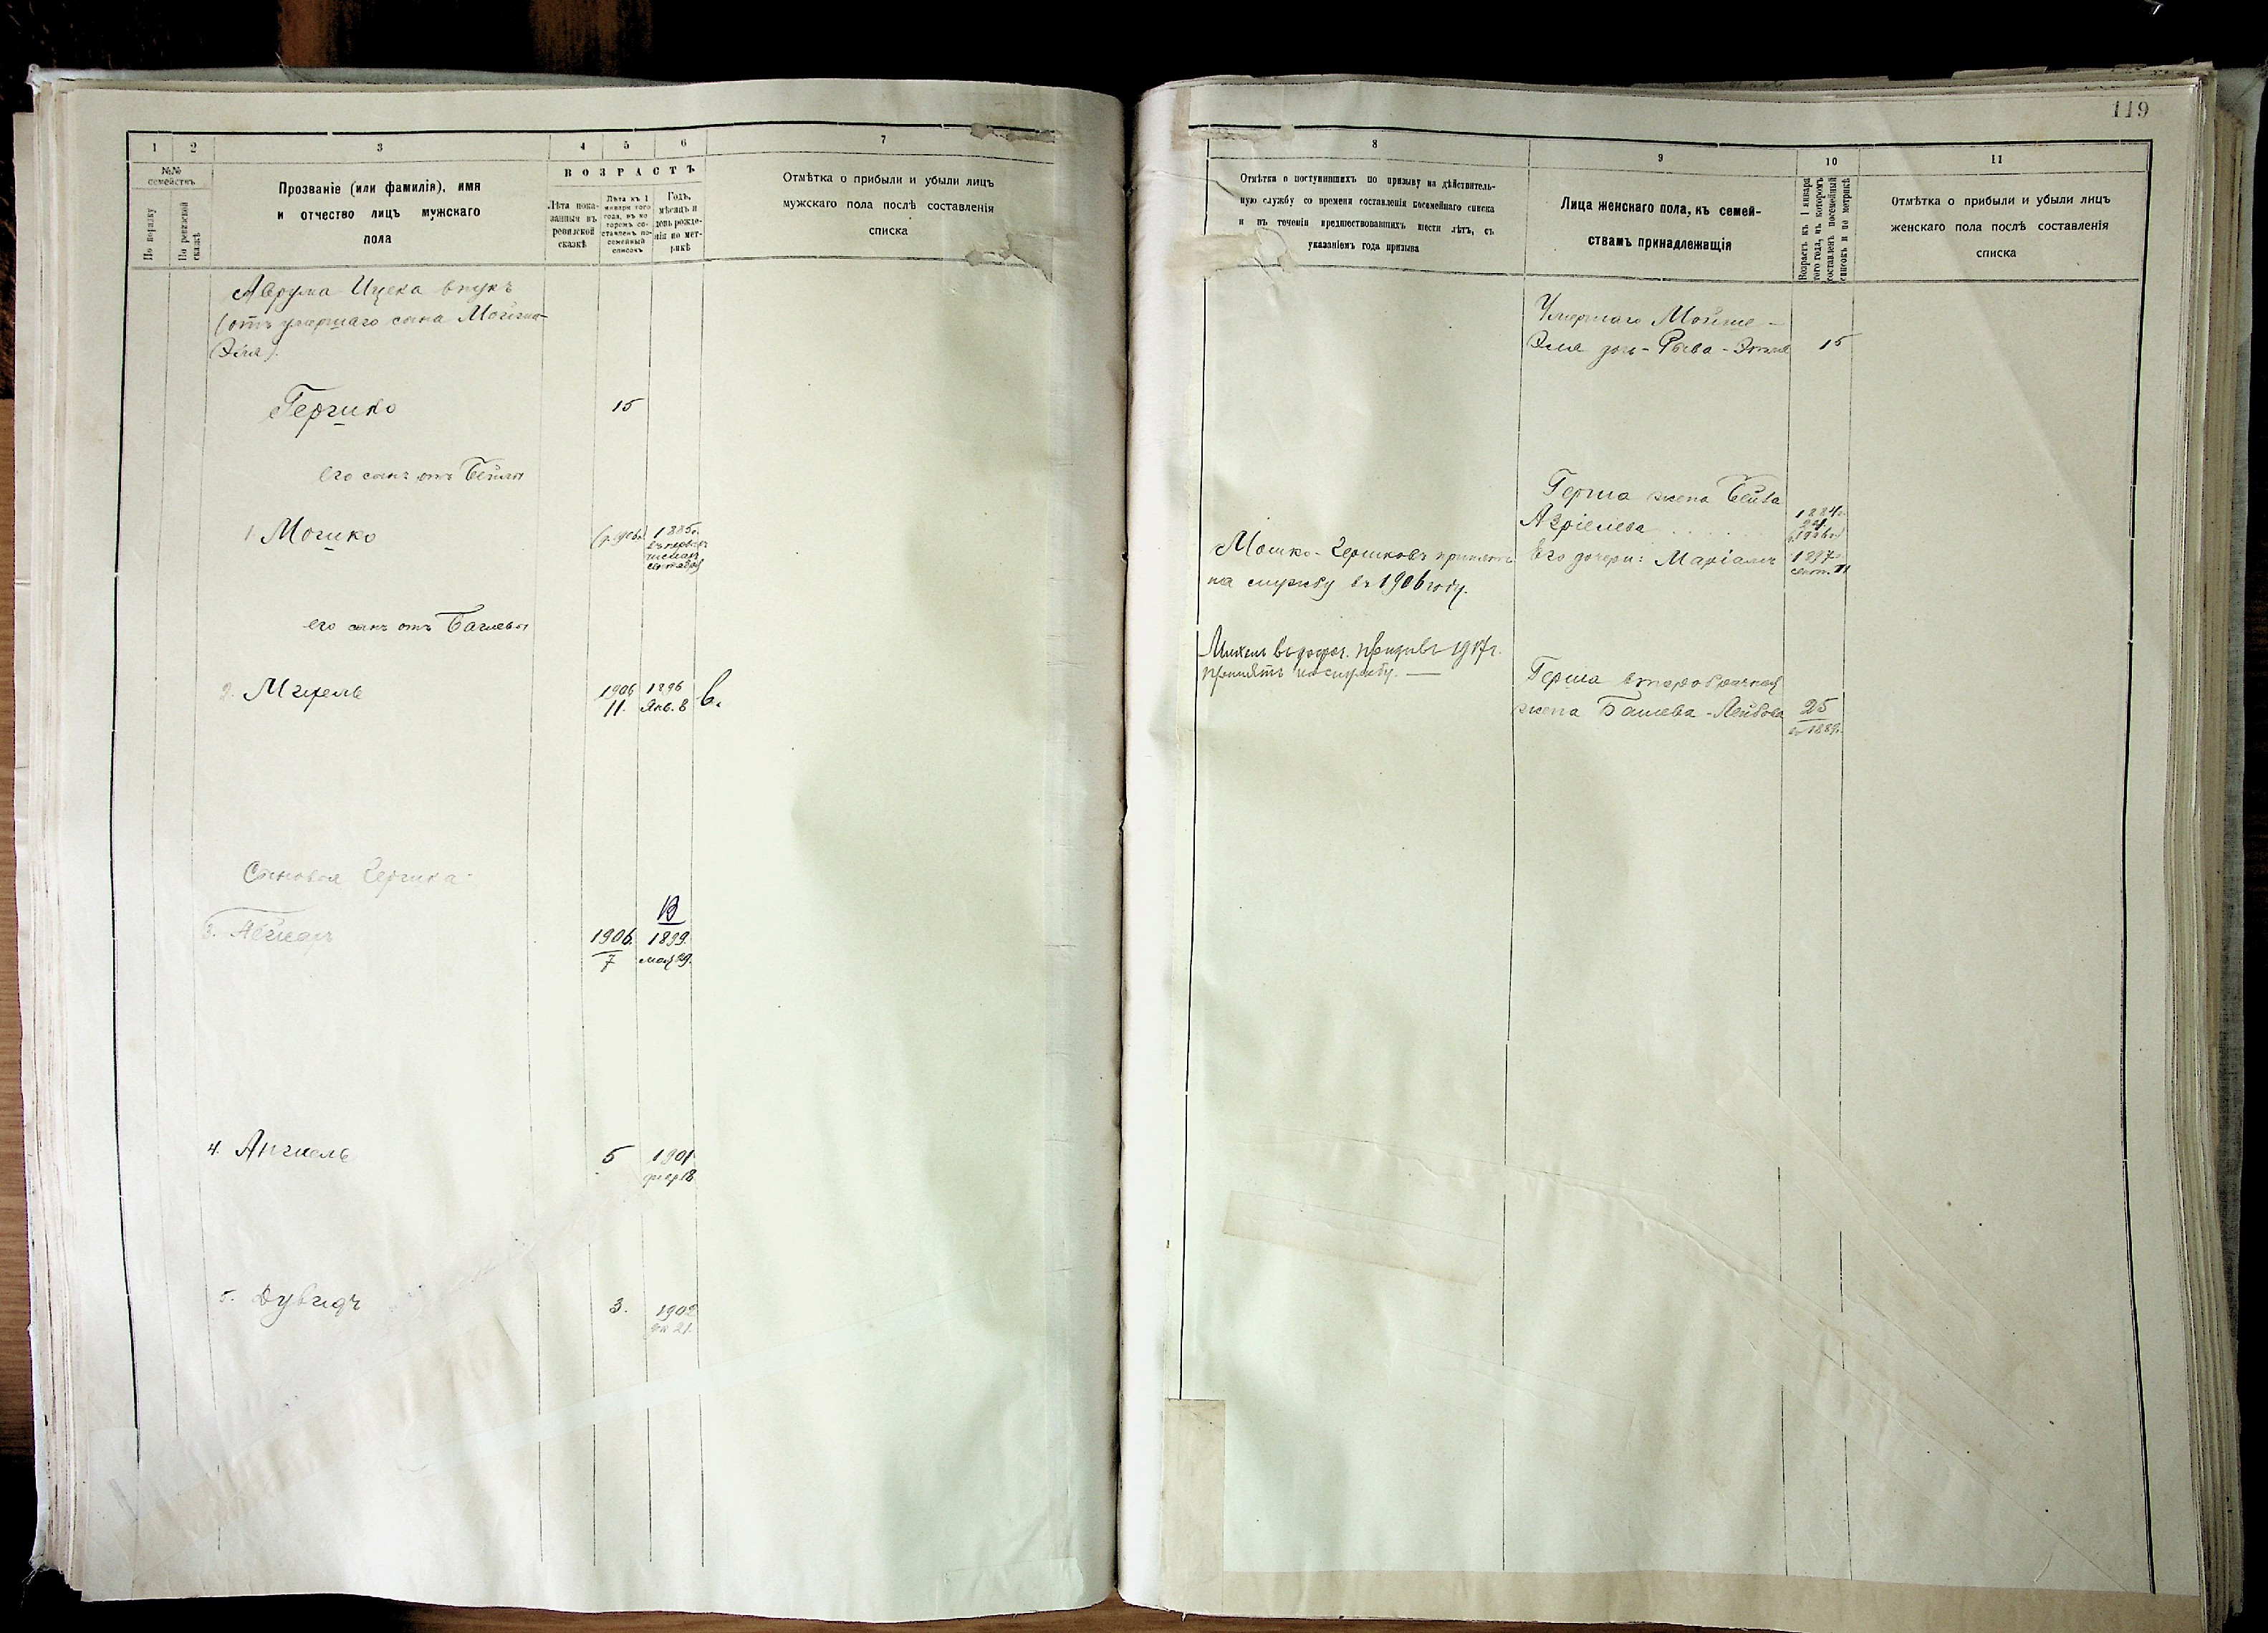 1
2
3
4
5
6
7
№№ семействъ
По порядку
По ревизской сказкѣ
Прозваніе (или фамилія), имя
и отчество лицъ мужскаго
пола
ВОЗРАСТЪ
Лѣта пока-
занныя въ
ревизской
сказкѣ
Лѣта къ 1
января того
года, въ ко
торомъ со-
ставленъ по-
семейный
списокъ
Годъ,
мѣсяцъ и
день рожде-
нія по мет-
рикѣ
Отмѣтка о прибыли и убыли лицъ
мужскаго пола послѣ составленія
списка
Аврума Ицека внукъ
(отъ умершаго сына Мойша-
Эля).
Гершко
15
его сынъ отъ Бейлы
1 Мошко
1885г.
его сынъ отъ Башевы
2. Михель
1906
11.
1896
Янв. 8
в.
Сыновья Гершка
3.
1906.
7
В
1899.
мая 29.
4. Аншель
5
1901
5. Дувидъ
3.
1902
дк 21.
119
8
9
10
11
Отмѣтка о поступившихъ по призыву на дѣйствитель-
ную службу со времени составленія посемейнаго списка
и въ теченіи предшествовавшихъ шести лѣтъ, съ
указаніемъ года призыва
Лица женскаго пола, къ семей-
ствамъ принадлежащія
Возрастъ къ 1 января
того года, въ которомъ
составленъ посемейный
списокъ и по метрикѣ
Отмѣтка о прибыли и убыли лицъ
женскаго пола послѣ составленія
списка
Умершаго Мойше-
Эля дочь - Рыва - Этля
15
Герша жена Бейла
Азріелева
1884г.
Мошко Гершковъ принятъ
на службу въ 1906 году.
Его дочери: Маріамъ
1897г.
сент. 11
Михель въ призывъ 1917г.
принятъ на службу. —
Герша второбрачная
жена Башева-Лейбова
25
1889г.